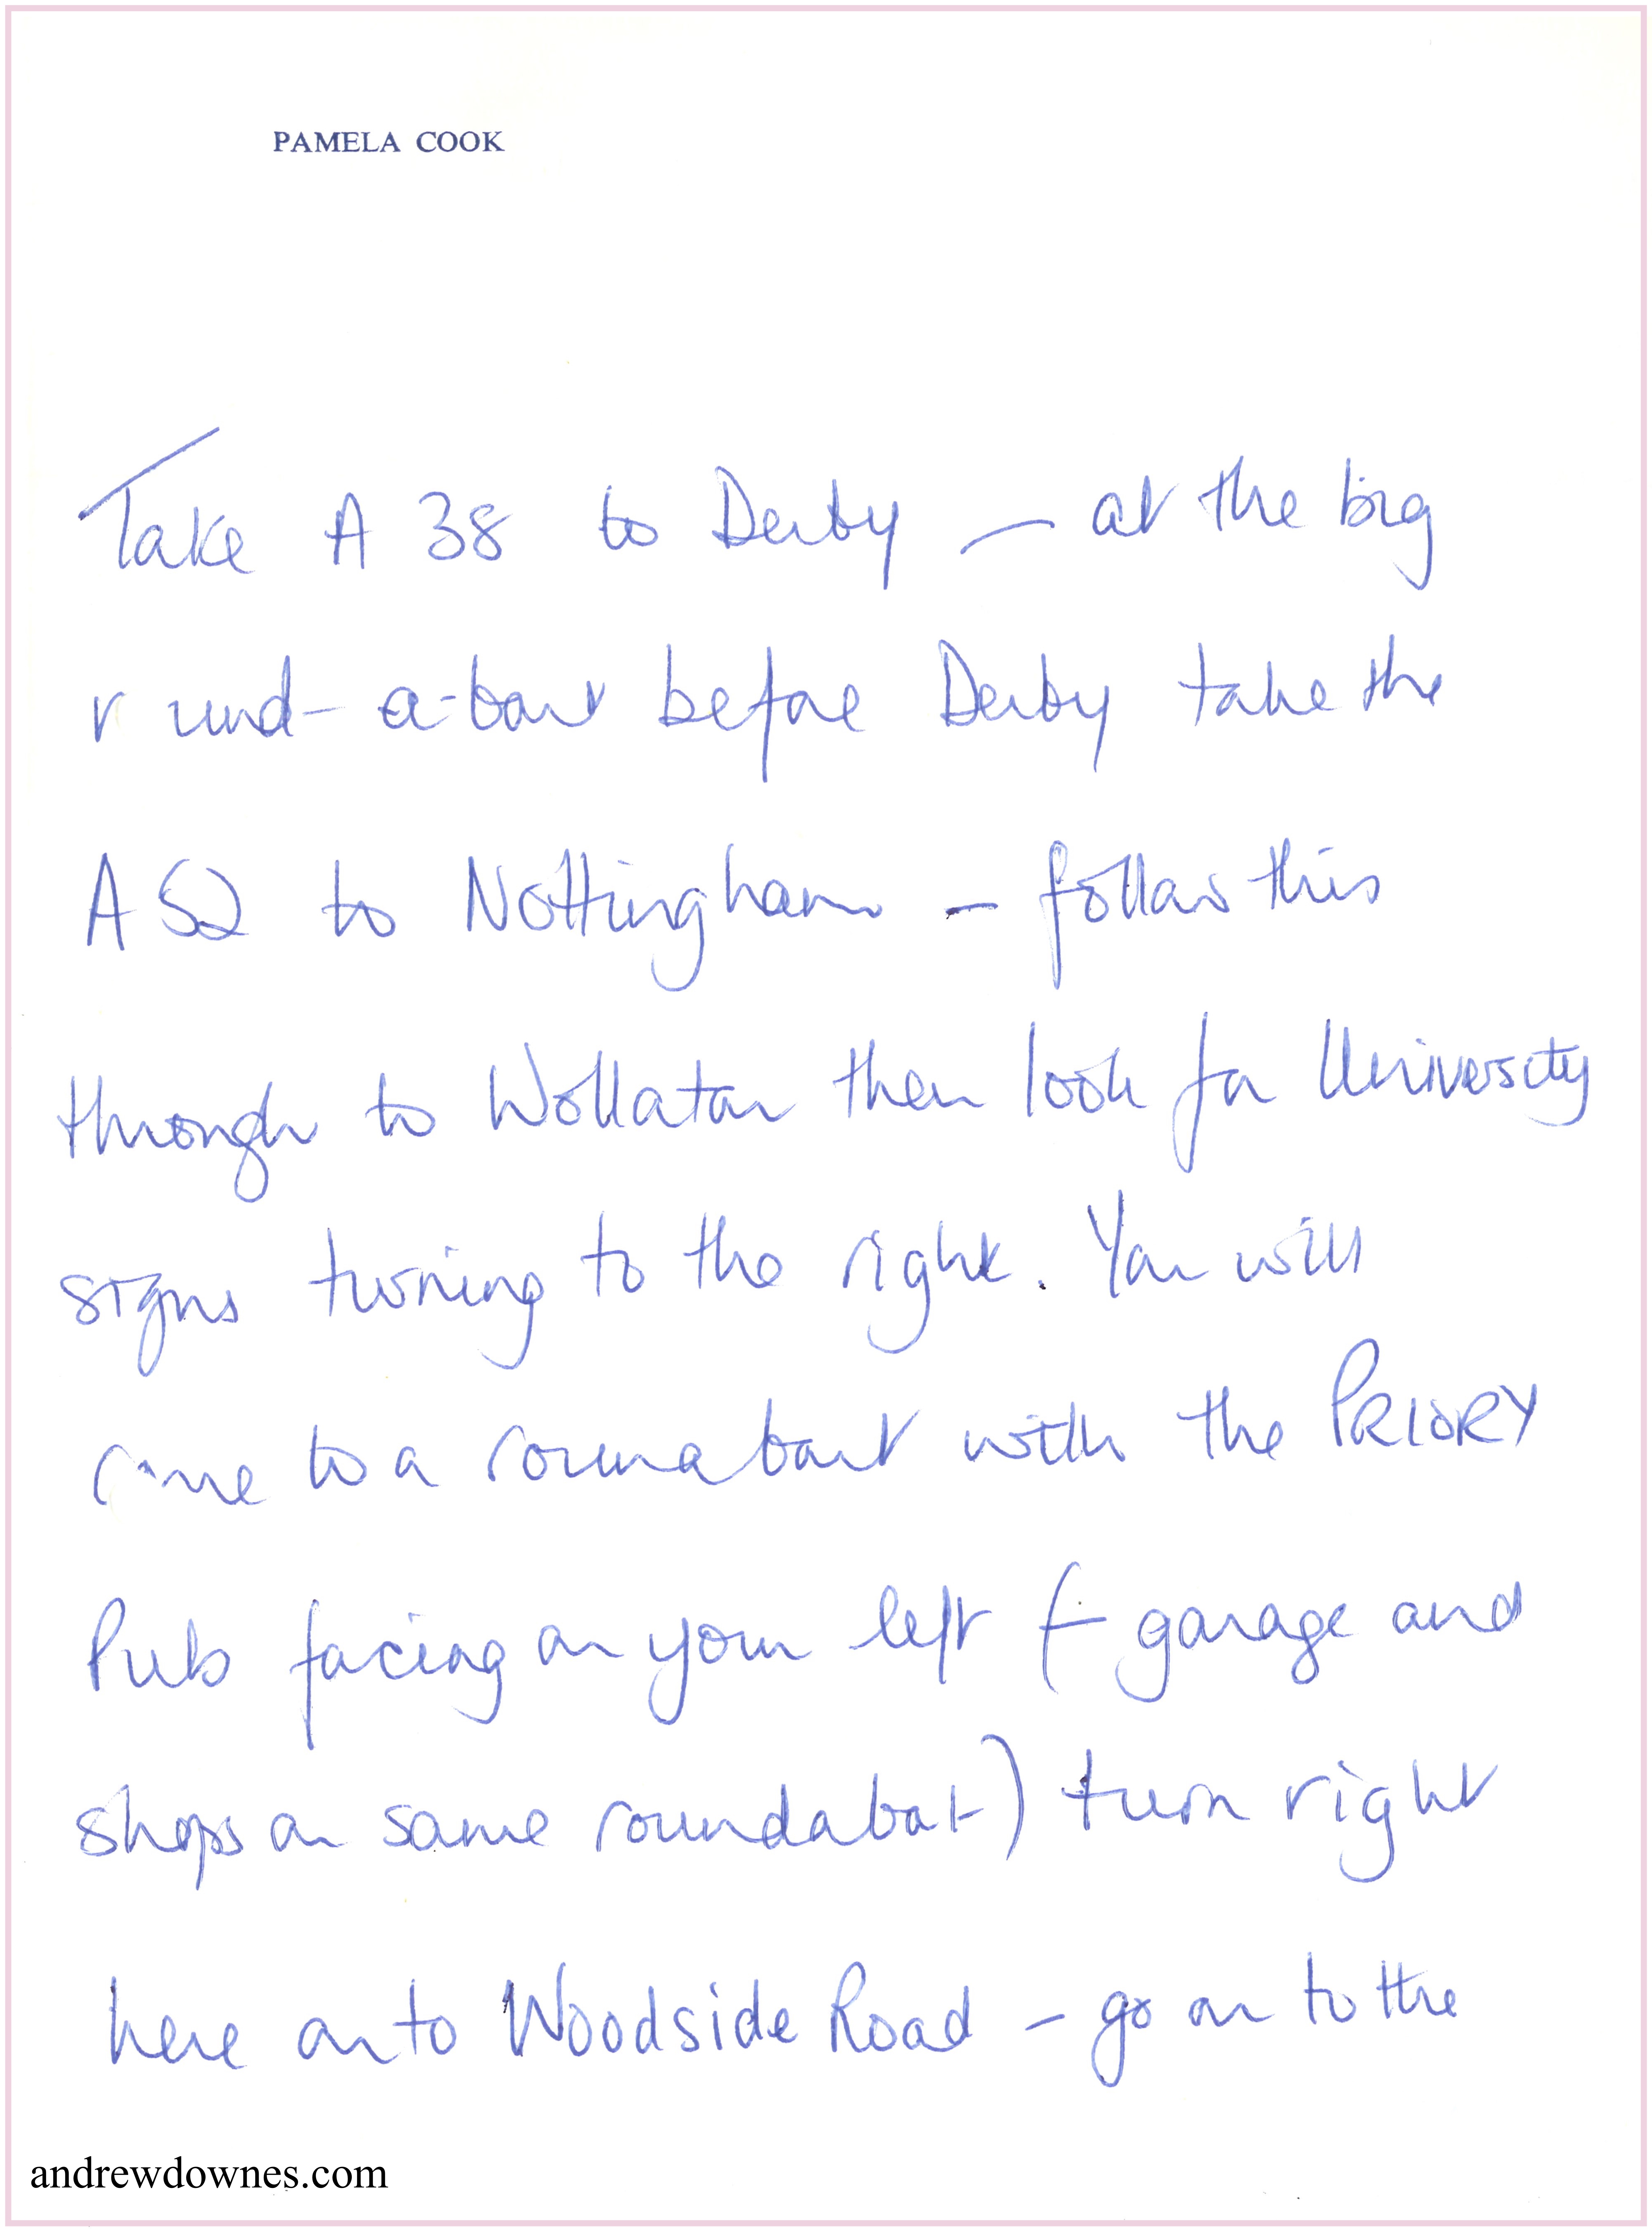 PAMELA COOK
Take A 38 to Derby – at the big
round-a-bout before Derby take the
A 52 to Nottingham – follow this
through to Wollaton then look for University
signs turning to the right. You will
come to a roundabout with the PRIORY
Pub facing on your left (– garage and
shops on same roundabout) turn right
here on to Woodside Road – go on to the
andrewdownes.com